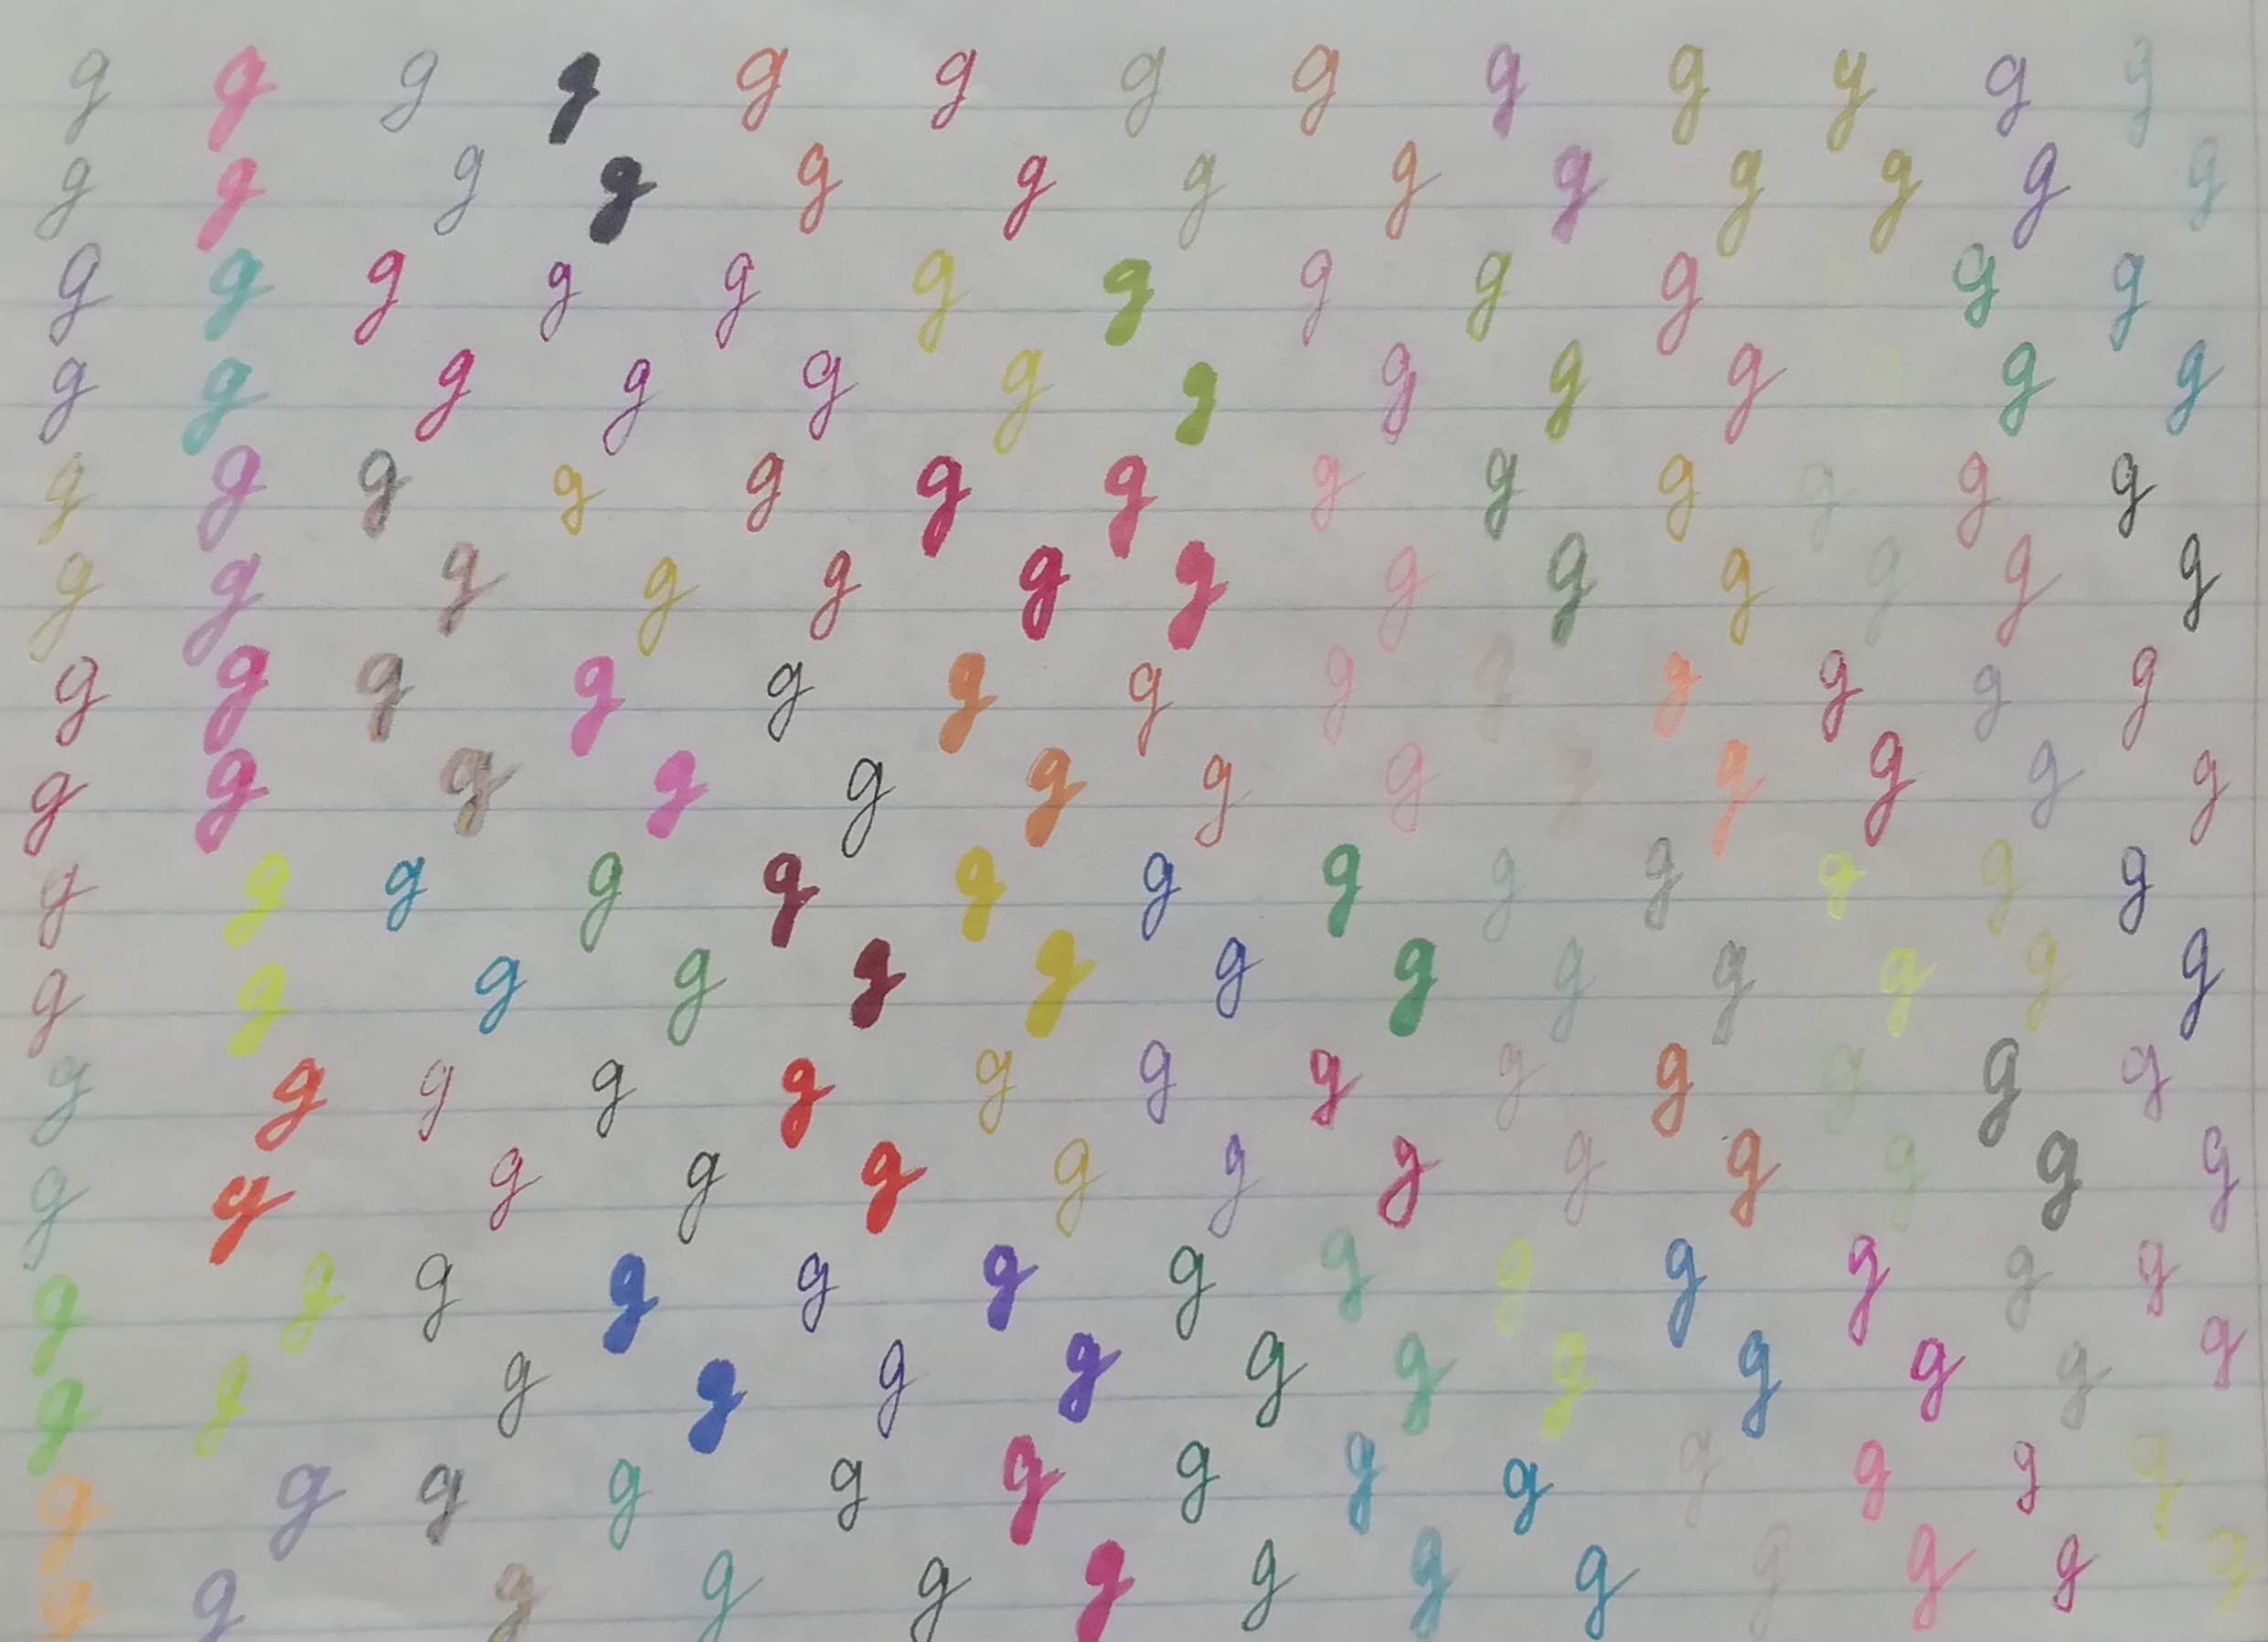 g g g g g g g g g g y g g
g g g g g g g g g g g g g
g g g g g g g g g g g g
g g g g g g g g g g g g
g g g g g g g g g g g g g
g g g g g g g g g g g g g
g g g g g g g g g g g g
g g g g g g g g g g g g
g g g g g g g g g g g g g
g g g g g g g g g g g g g
g g g g g g g g g g g g g
g g g g g g g g g g g g g
g g g g g g g g g g g g g
g g g g g g g g g g g g g
g g g g g g g g g g g g g
g g g g g g g g g g g g g